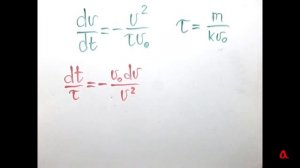 dv/dt = - v²/τv₀    τ = m/kv₀
dt/τ = - v₀dv/v²
a